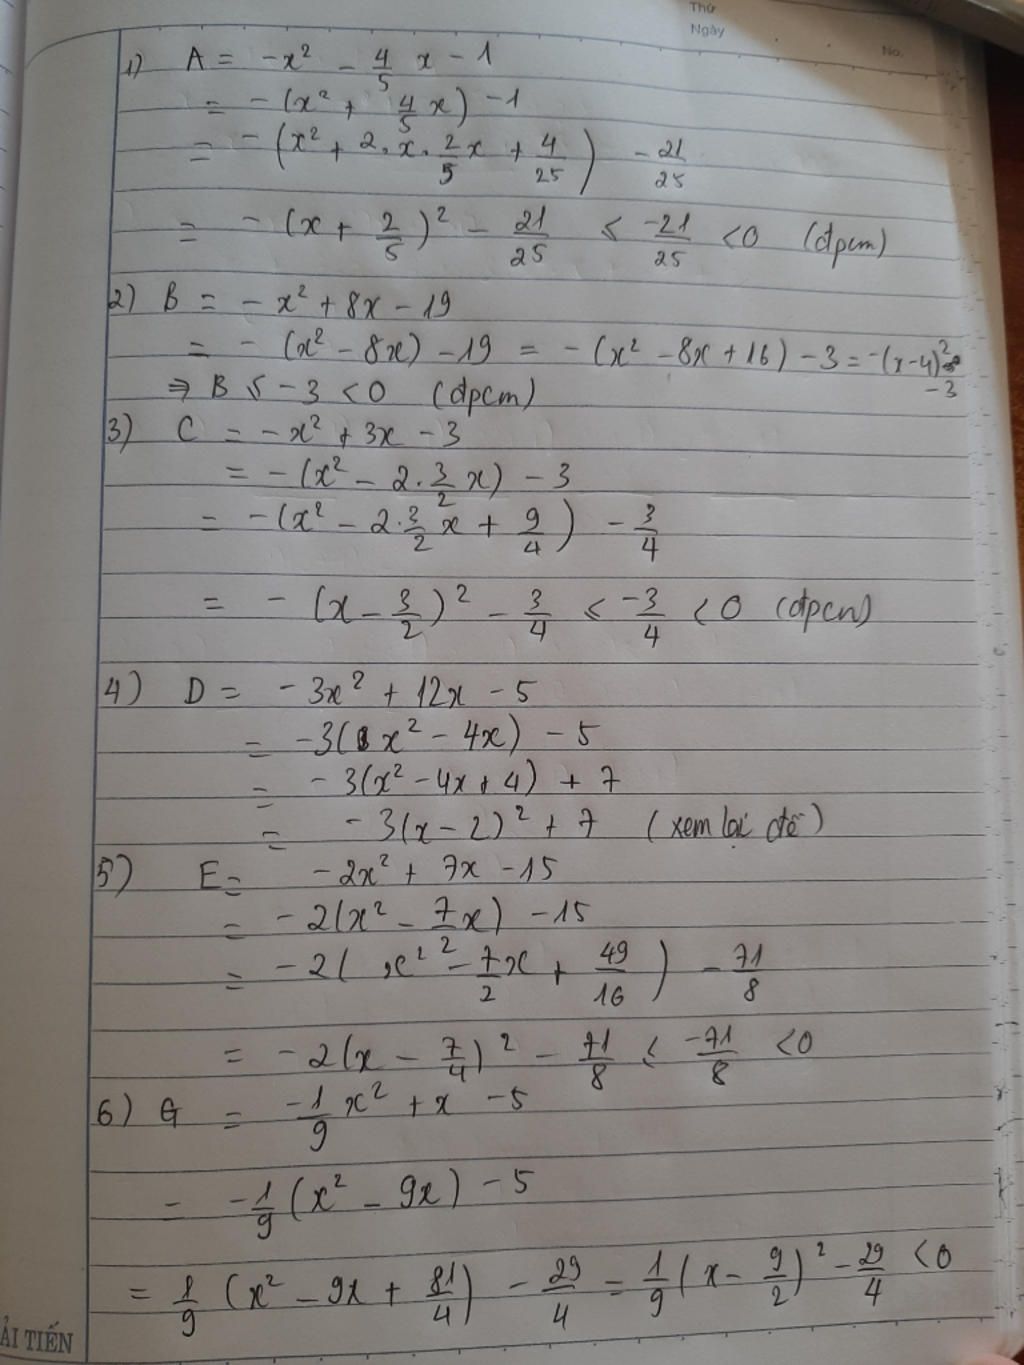 Thứ
Ngày
No.
1) A = -x² - 4/5 x - 1
= -(x² + 4/5 x) - 1
= -(x² + 2.x.2/5 x + 4/25) - 21/25
= -(x + 2/5)² - 21/25 ≤ -21/25 < 0 (đpcm)
2) B = -x² + 8x - 19
= -(x² - 8x) - 19 = -(x² - 8x + 16) - 3 = -(x-4)²
-3
⇒ B ≤ -3 < 0 (đpcm)
3) C = -x² + 3x - 3
= -(x² - 2.3/2 x) - 3
= -(x² - 2.3/2 x + 9/4) - 3/4
= -(x - 3/2)² - 3/4 ≤ -3/4 < 0 (đpcm)
4) D = -3x² + 12x - 5
= -3(x² - 4x) - 5
= -3(x² - 4x + 4) + 7
= -3(x - 2)² + 7 (xem lại đề)
5) E = -2x² + 7x - 15
= -2(x² - 7/2 x) - 15
= -2(x² - 7/2 x + 49/16) - 71/8
= -2(x - 7/4)² - 71/8 ≤ -71/8 < 0
6) G = -1/9 x² + x - 5
= -1/9 (x² - 9x) - 5
= 1/9 (x² - 9x + 81/4) - 29/4 = 1/9 (x - 9/2)² - 29/4 < 0
ẢI TIẾN